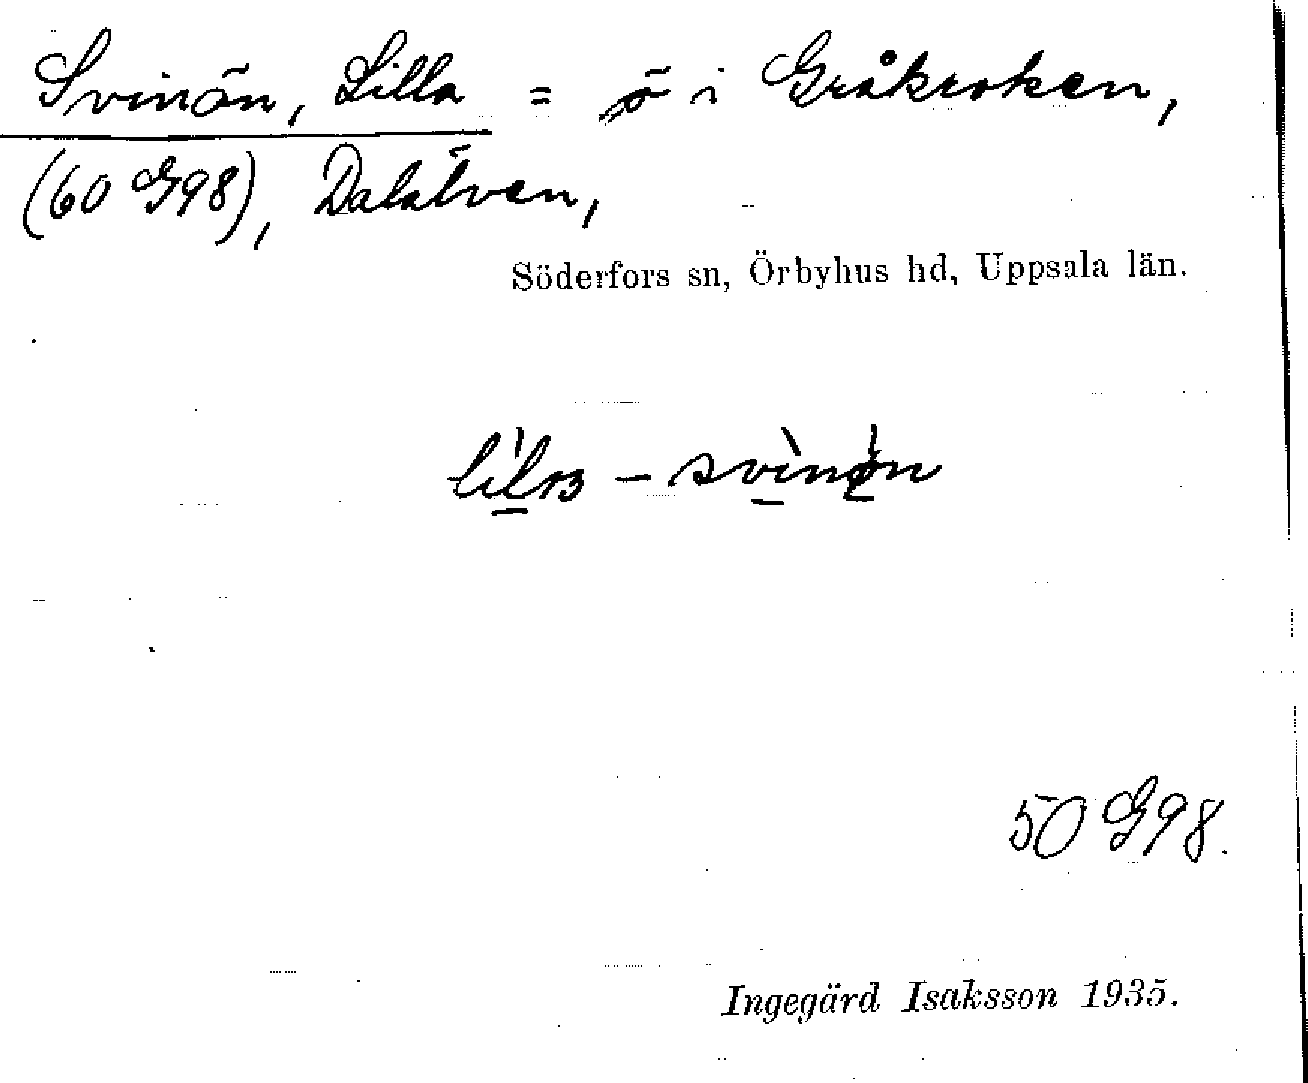 Svinön, Lilla = ö i Gråkroken,
(60 G98), Dalälven,
Söderfors sn, Örbyhus hd, Uppsala län.
50 G98.
Ingegärd Isaksson 1935.